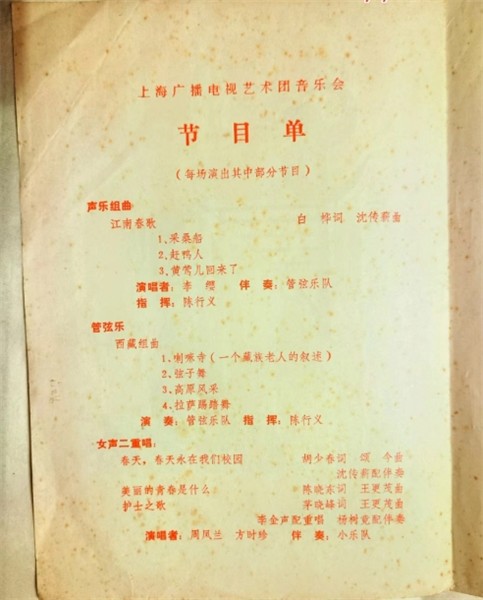 上海广播电视艺术团音乐会
节目单
（每场演出其中部分节目）
声乐组曲
江南春歌 白 桦词 沈传薪曲
1、采桑船
2、赶鸭人
3、黄莺儿回来了
演唱者：李 缨 伴 奏：管弦乐队
指 挥：陈行义
管弦乐
西藏组曲
1、喇嘛寺（一个藏族老人的叙述）
2、弦子舞
3、高原风采
4、拉萨踢踏舞
演 奏：管弦乐队 指 挥：陈行义
女声二重唱：
春天，春天永在我们校园 胡少春词 颂 今曲
沈传薪配伴奏
美丽的青春是什么 陈晓东词 王更茂曲
护士之歌 茅晓峰词 王更茂曲
李金声配重唱 杨树竟配伴奏
演唱者：周凤兰 方时珍 伴 奏：小乐队